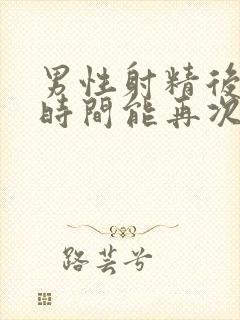 男性射精後
時間能再次
路芸兮